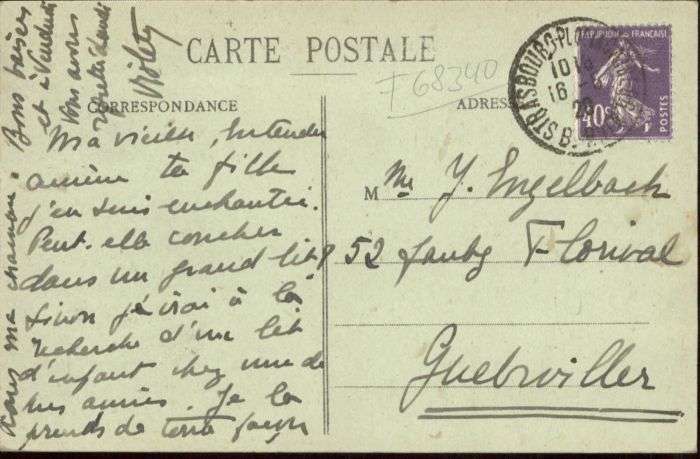 CARTE POSTALE
F 68340
CORRESPONDANCE
ADRESSE
Ma vieille, entendu
amène ta fille
j'en suis enchantée.
Peut-elle coucher
dans un grand lit?
Sinon j'irai à la
recherche d'un lit
d'enfant chez une de
mes amies. Je la
prends de toute façon
dans ma chambre. Bons baisers
et à Vendredi
Violette
M me Y. Engelbach
52 faubg Florival
Guebwiller
REPUBLIQUE FRANÇAISE
40c
POSTES
STRASBOURG
16
26